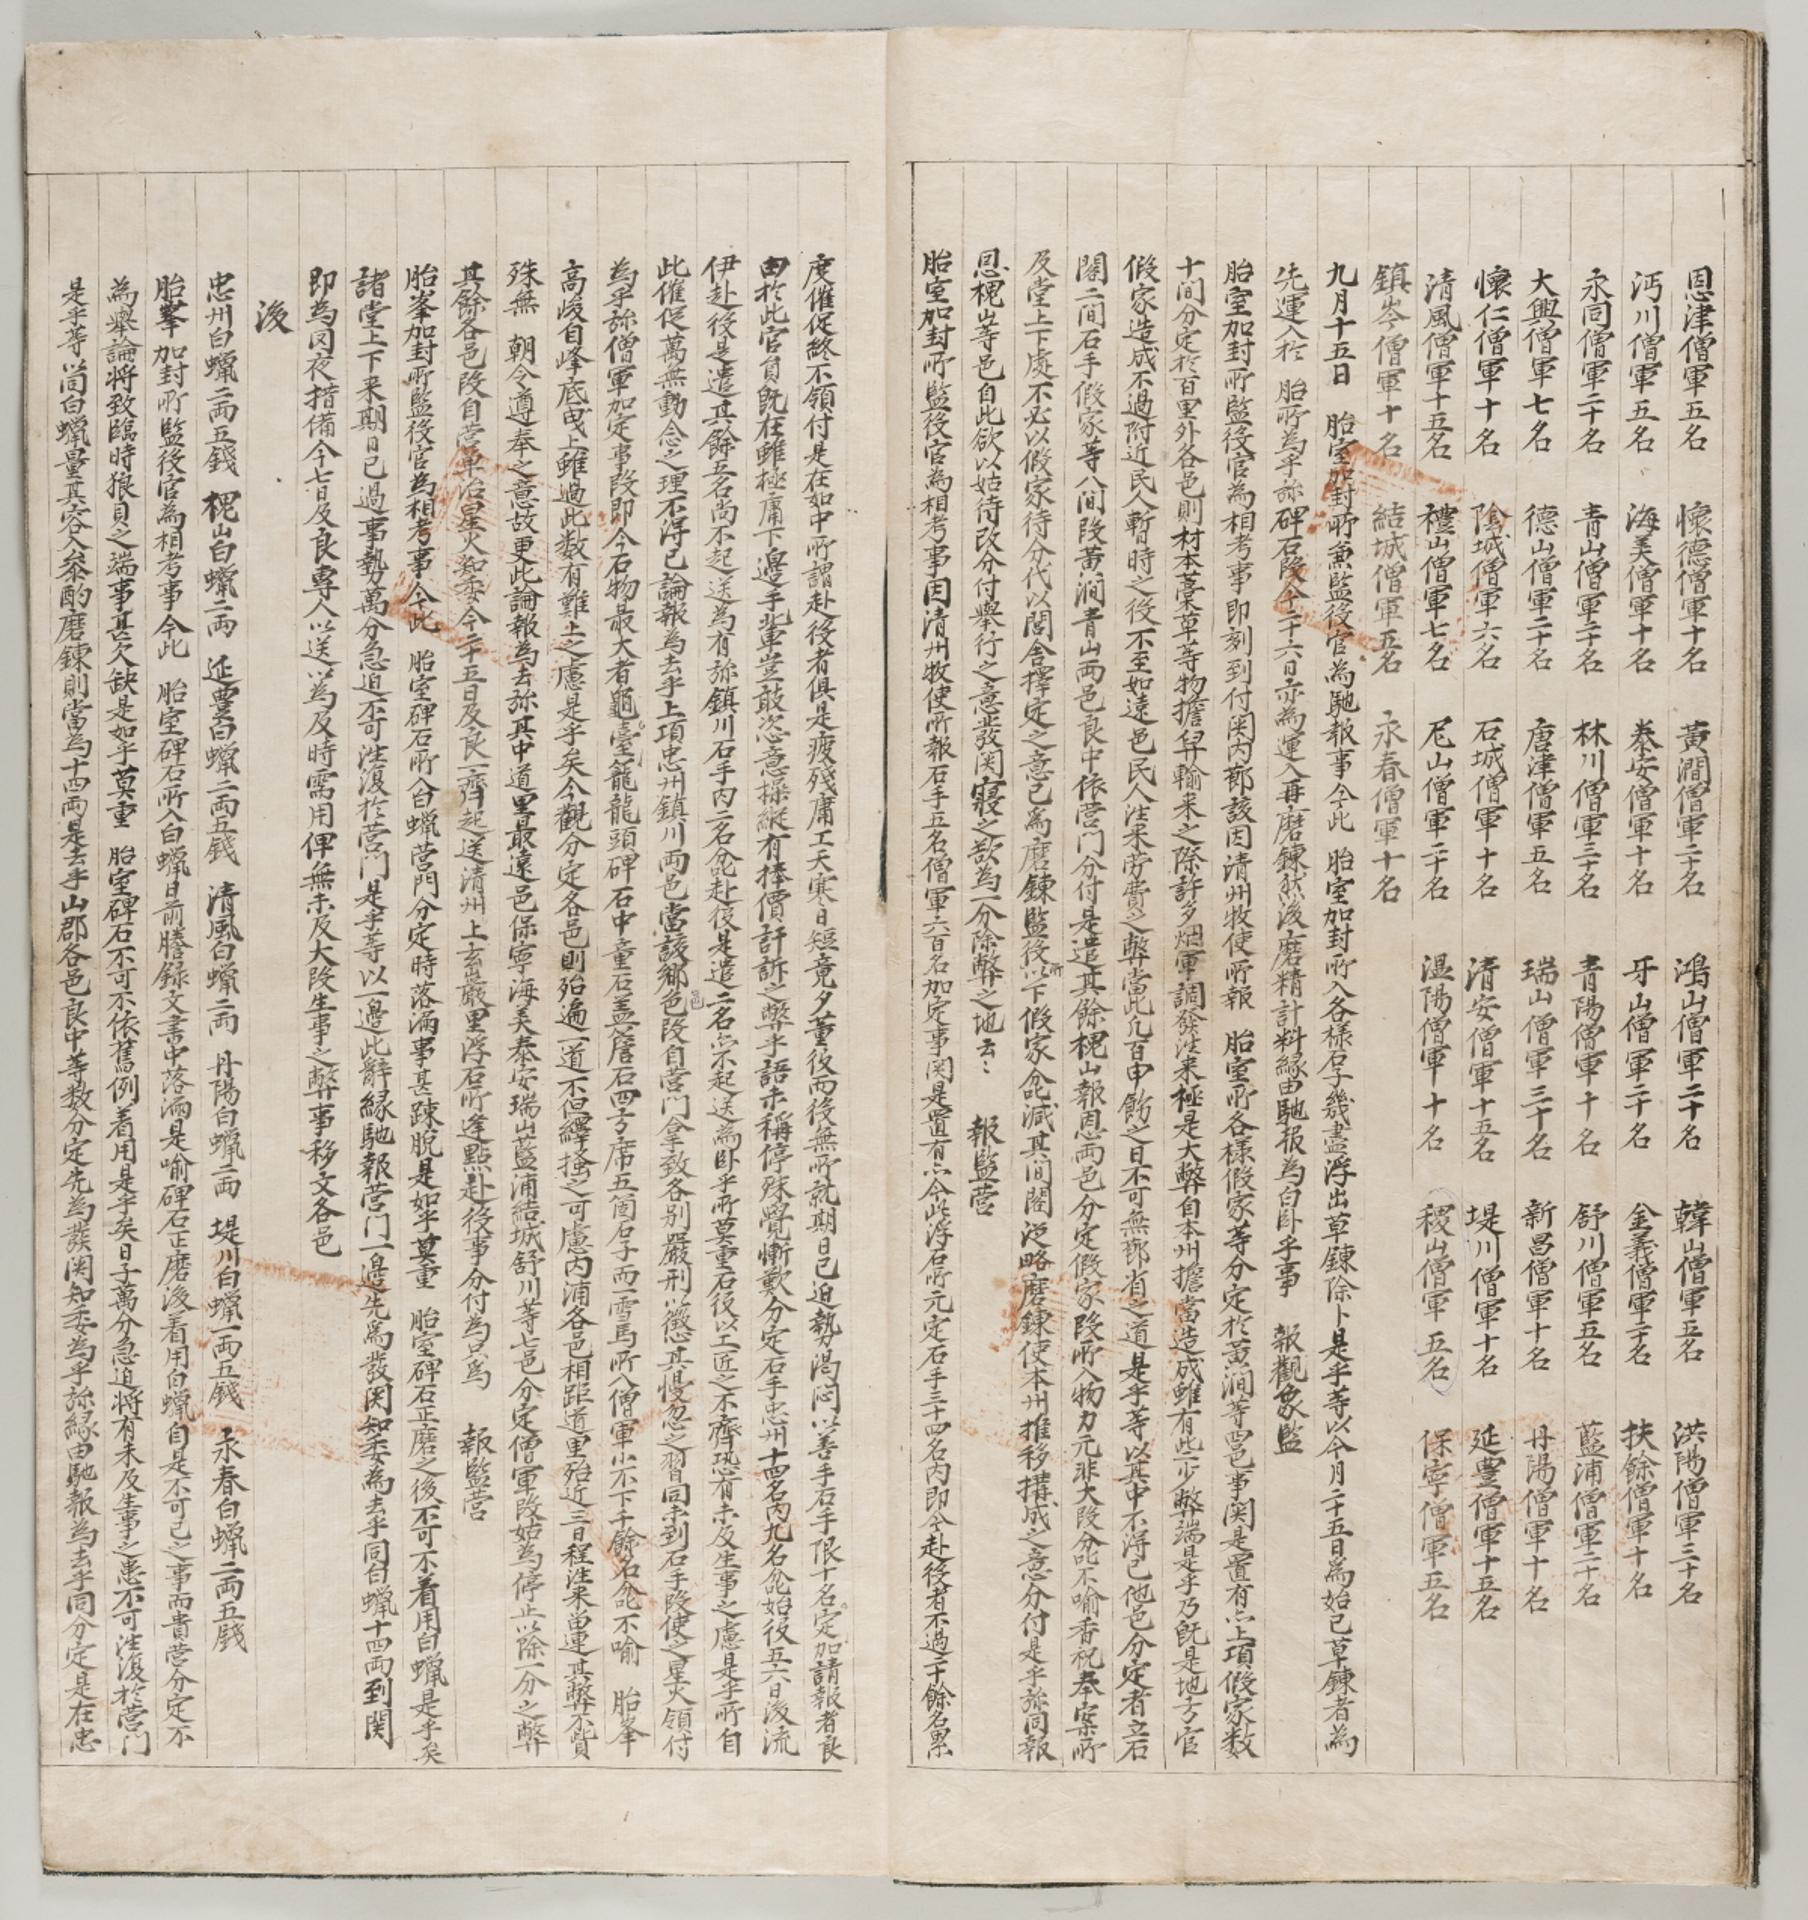 恩津僧軍五名 懷德僧軍十名 黃澗僧軍二十名 鴻山僧軍二十名 韓山僧軍五名 洪陽僧軍三十名
沔川僧軍五名 海美僧軍十名 泰安僧軍十名 牙山僧軍二十名 全義僧軍二十名 扶餘僧軍十名
永同僧軍二十名 靑山僧軍二十名 林川僧軍三十名 靑陽僧軍十名 舒川僧軍五名 藍浦僧軍二十名
大興僧軍七名 德山僧軍二十名 唐津僧軍五名 瑞山僧軍三十名 新昌僧軍十名 丹陽僧軍十名
懷仁僧軍十名 陰城僧軍六名 石城僧軍十名 清安僧軍十五名 堤川僧軍十名 延豊僧軍十五名
清風僧軍十五名 禮山僧軍七名 尼山僧軍二十名 溫陽僧軍十名 稷山僧軍五名 保寧僧軍五名
鎮岑僧軍十名 結城僧軍五名 永春僧軍十名
九月十五日 胎室加封所兼監役官為馳報事今此 胎室加封所入各樣石子幾盡浮出草鍊除卜是乎等以今月二十五日為始已草鍊者為
先運入於 胎所為乎旀碑石段今二十六日亦為運入再磨鍊然後磨精計料緣由馳報為白臥乎事 報觀象監
胎室加封所監役官為相考事即刻到付関內節該因清州牧使所報 胎室所各樣假家等分定於黃澗等四邑事関是置有亦上項假家数
十間分定於百里外各邑則材木藁草等物擔舁輸来之際許多烟軍調發往来極是大弊自本州擔當造成雖有些少弊端是乎乃旣是地方官
假家造成不過附近民人暫時之役不至如遠邑民人往来勞費之弊當此凡百申飭之日不可無節省之道是乎等以其中不得已他邑分定者立石
閣二間石手假家等八間段黃澗靑山両邑良中依營門分付是遣其餘槐山報恩両邑分定假家段所入物力元非大段分叱不喻香祝奉安所
及堂上下處不必以假家待分代以閭舍擇定之意已為磨鍊監役所以下假家分叱減其間閣從略磨鍊使本州推移搆成之意分付是乎旀同報
恩槐山等邑自此欲以姑待改分付擧行之意發関寢之欲為一分除弊之地云云 報監營
胎室加封所監役官為相考事因清州牧使所報石手五名僧軍六百名加定事関是置有亦今此浮石所元定石手三十四名內即今赴役者不過二十餘名累
度催促終不領付是在如中所謂赴役者俱是疲殘庸工天寒日短竟夕董役而役無所就期日已迫勢渴悶以善手石手限十名定加請報者良
由於此官員旣在雖極庸下邊手輩豈敢恣意操縱有捧價訐訴之弊乎語未稱停殊覺慚歎分定石手忠州十四名內九名叱始役五六日後流
伊赴役是遣其餘五名尚不起送為有旀鎮川石手內二名叱赴役是遣二名亦不起送為臥乎所莫重石役以工匠之不齊恐有未及生事之慮是乎所自
此催促萬無動念之理不得已論報為去乎上項忠州鎮川両邑當該鄉色段自營門拿致各別嚴刑以懲其慢忽之習同未到石手段使之星火領付
為乎旀僧軍加定事段即今石物最大者龜臺籠龍頭碑石中童石盖簷石四方席五箇石子而一雪馬所入僧軍小不下千餘名叱不喻 胎峯
高峻自峰底曳上雖過此数有難上之慮是乎矣今觀分定各邑則殆遍一道不但繹搔之可慮內浦各邑相距道里殆近三日程往来留連其弊不貲
殊無 朝令遵奉之意故更此論報為去旀其中道里最遠邑保寧海美泰安瑞山藍浦結城舒川等七邑分定僧軍段姑為停止以除一分之弊
其餘各邑段自營軍治星火知委今二十五日及良一齊起送清州上玄岩嚴里浮石所逢點赴役事分付為只為 報監營
胎峯加封所監役官為相考事今此 胎室碑石所入白蠟營門分定時落漏事甚踈脫是如乎莫重 胎室碑石正磨之後不可不着用白蠟是乎矣
諸堂上下来期日已過事勢萬分急迫不可往復於營門是乎等以一邊此辭緣馳報營門一邊先為發関知委為去乎同白蠟十四両到関
即為罔夜措備今七日及良專人以送以為及時需用俾無未及大段生事之弊事移文各邑
後
忠州白蠟二両五錢 槐山白蠟二両 延豊白蠟二両五錢 清風白蠟二両 丹陽白蠟二両 堤川白蠟一両五錢 永春白蠟二両五錢
胎峯加封所監役官為相考事今此 胎室碑石所入白蠟日前謄録文書中落漏是喻碑石正磨後着用白蠟自是不可已之事而貴營分定不
為擧論將致臨時狼貝之端事甚欠缺是如乎莫重 胎室碑石不可不依舊例着用是乎矣日子萬分急迫將有未及生事之患不可往復於營門
是乎等以同白蠟量其容入參酌磨鍊則當為十四両是去乎山郡各邑良中等数分定先為發関知委為乎旀緣由馳報為去乎同分定是在忠